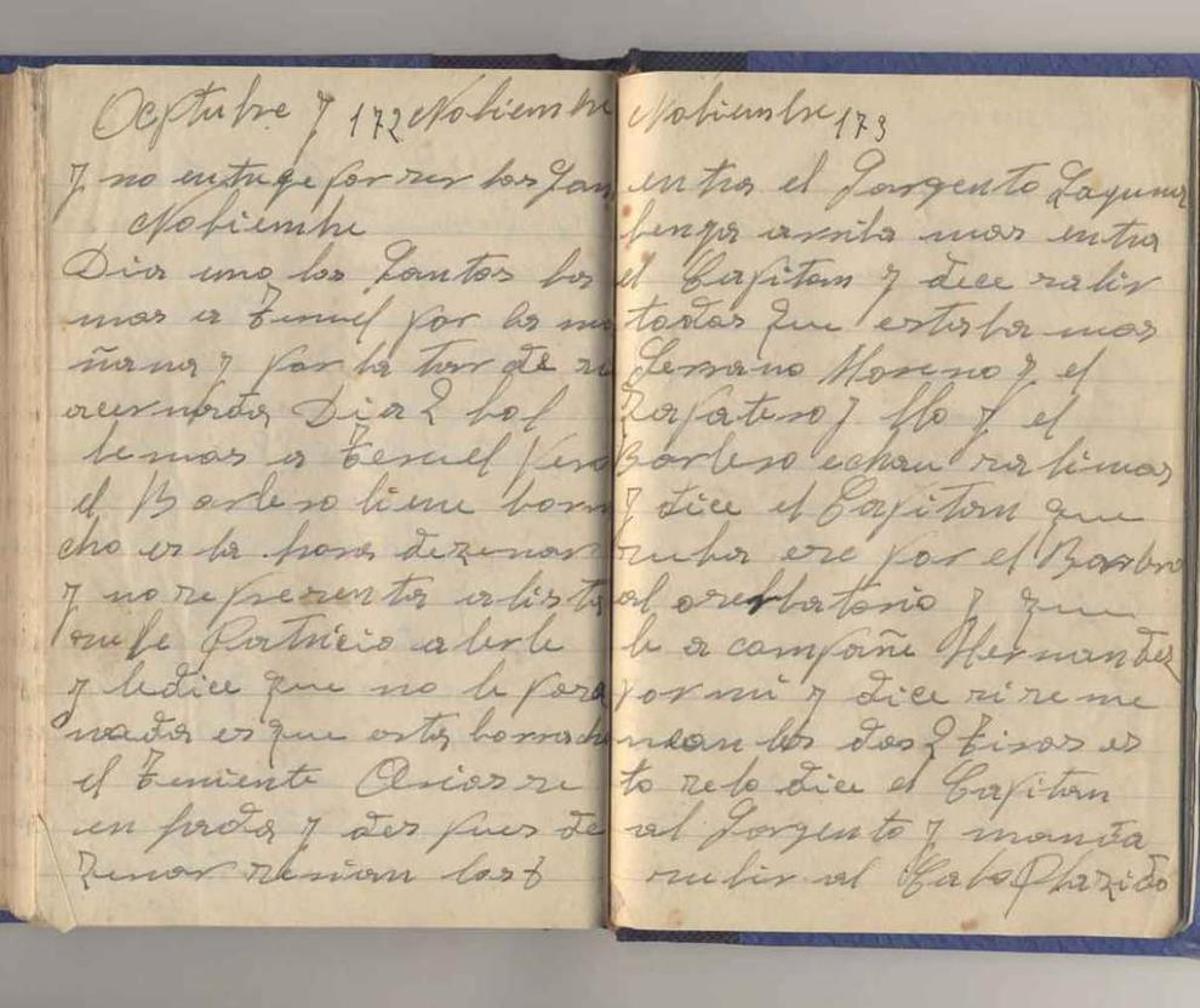 Ocptubre y 172 Nobiembre
y no entuge por ser los San
Nobiembre
Dia uno los Santos ba
mos a Teruel por la ma
ñana y por la tar de
Dia 2 bol
bemos a Teruel Pero
el Barbero biene borra
cho es la hora dezenar
y no se presenta a lista
sube Patricio a berle
y ledice que no le pasa
nada es que esta borracho
el Teniente Arias se
en fada y des pues de
Zenar
Nobiembre 173
entra el Sargento Laguna
benga arriba mas entra
el Capitan y dice salir
todos que estaba mos
Serrano Moreno y el
Zapatero y llo y el
Barbero echau salimos
y dice el Capitan que
suba ese por el Barbero
al y que
le a compañe Hernandez
por mi y dice si se me
nean los dos 2 Tiros es
to se lo dice el Capitan
al Sargento y manda
subir al Cabo Plazido